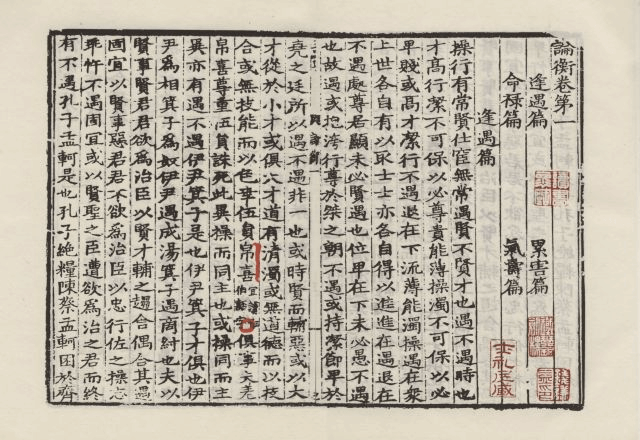 論衡卷第一
逢遇篇 累害篇
命祿篇 氣壽篇
逢遇篇
操行有常賢仕宦無常遇賢不賢才也遇不遇時也
才高行潔不可保以必尊貴能薄操濁不可保以必
卑賤或高才潔行不遇退在下流薄能濁操遇在衆
上世各自有以取士士亦各自得以進進在遇退在
不遇處尊居顯未必賢遇也位卑在下未必愚不遇
也故遇或抱洿行尊於桀之朝不遇或持潔節卑於
堯之廷所以遇不遇非一也或時賢而輔惡或以大
才從於小才或俱大才道有清濁或無道德而以技
合或無技能而以色幸伍員帛喜俱事夫差
帛喜尊重伍員誅死此異操而同主也或操同而主
異亦有遇不遇伊尹箕子是也伊尹箕子才俱也伊
尹爲相箕子爲奴伊尹遇成湯箕子遇商紂也夫以
賢事賢君君欲爲治臣以賢才輔之趨合偶合其遇
固宜以賢事惡君君不欲爲治臣以忠行佐之操志
乖忤不遇固宜或以賢聖之臣遭欲爲治之君而終
有不遇孔子孟軻是也孔子絶糧陳蔡孟軻困於齊